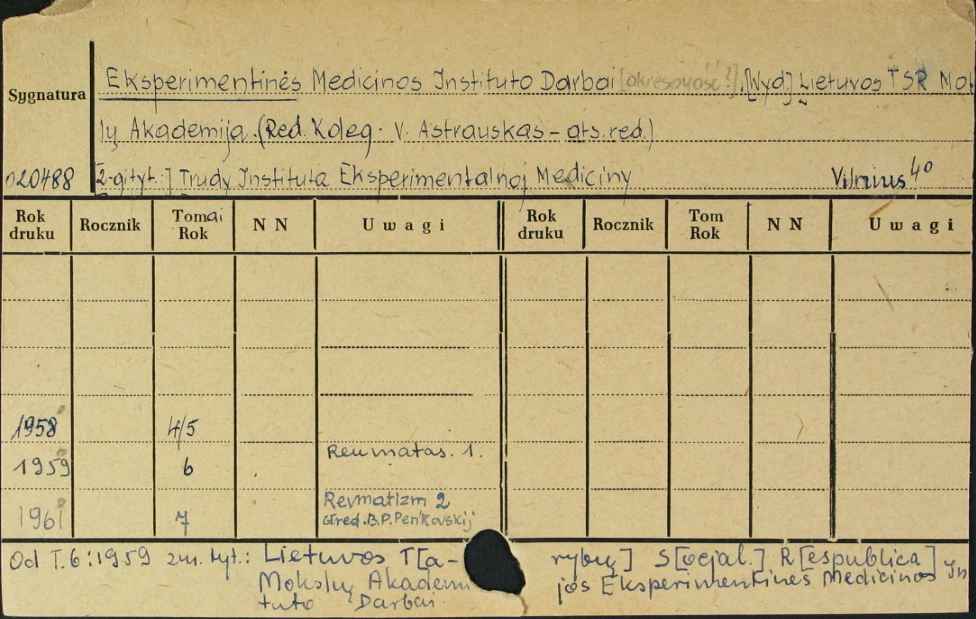 Eksperimentinės Medicinos Instituto Darbai [Wyd.] Lietuvos TSR Moks-
Sygnatura
lų Akademija. (Red. Koleg. V. Astrauskas - ats. red.)
n20488 [2-gi tyt.:] Trudy Instituta Eksperimentalnoj Mediciny Vilnius 40
Rok druku Rocznik Tom ai Rok N N Uwagi Rok druku Rocznik Tom Rok N N Uwagi
1958 4/5
1959 6 Reumatas. 1.
1961 7 Revmatizm 2
otred. B.P. Pen'kovskij
Od T.6:1959 zm. tyt.: Lietuvos T[a- rybų] S[ocjal.] R[espublica]
Mokslų Akademi jos Eksperimentinės Medicinos Ins
tuto Darbai.